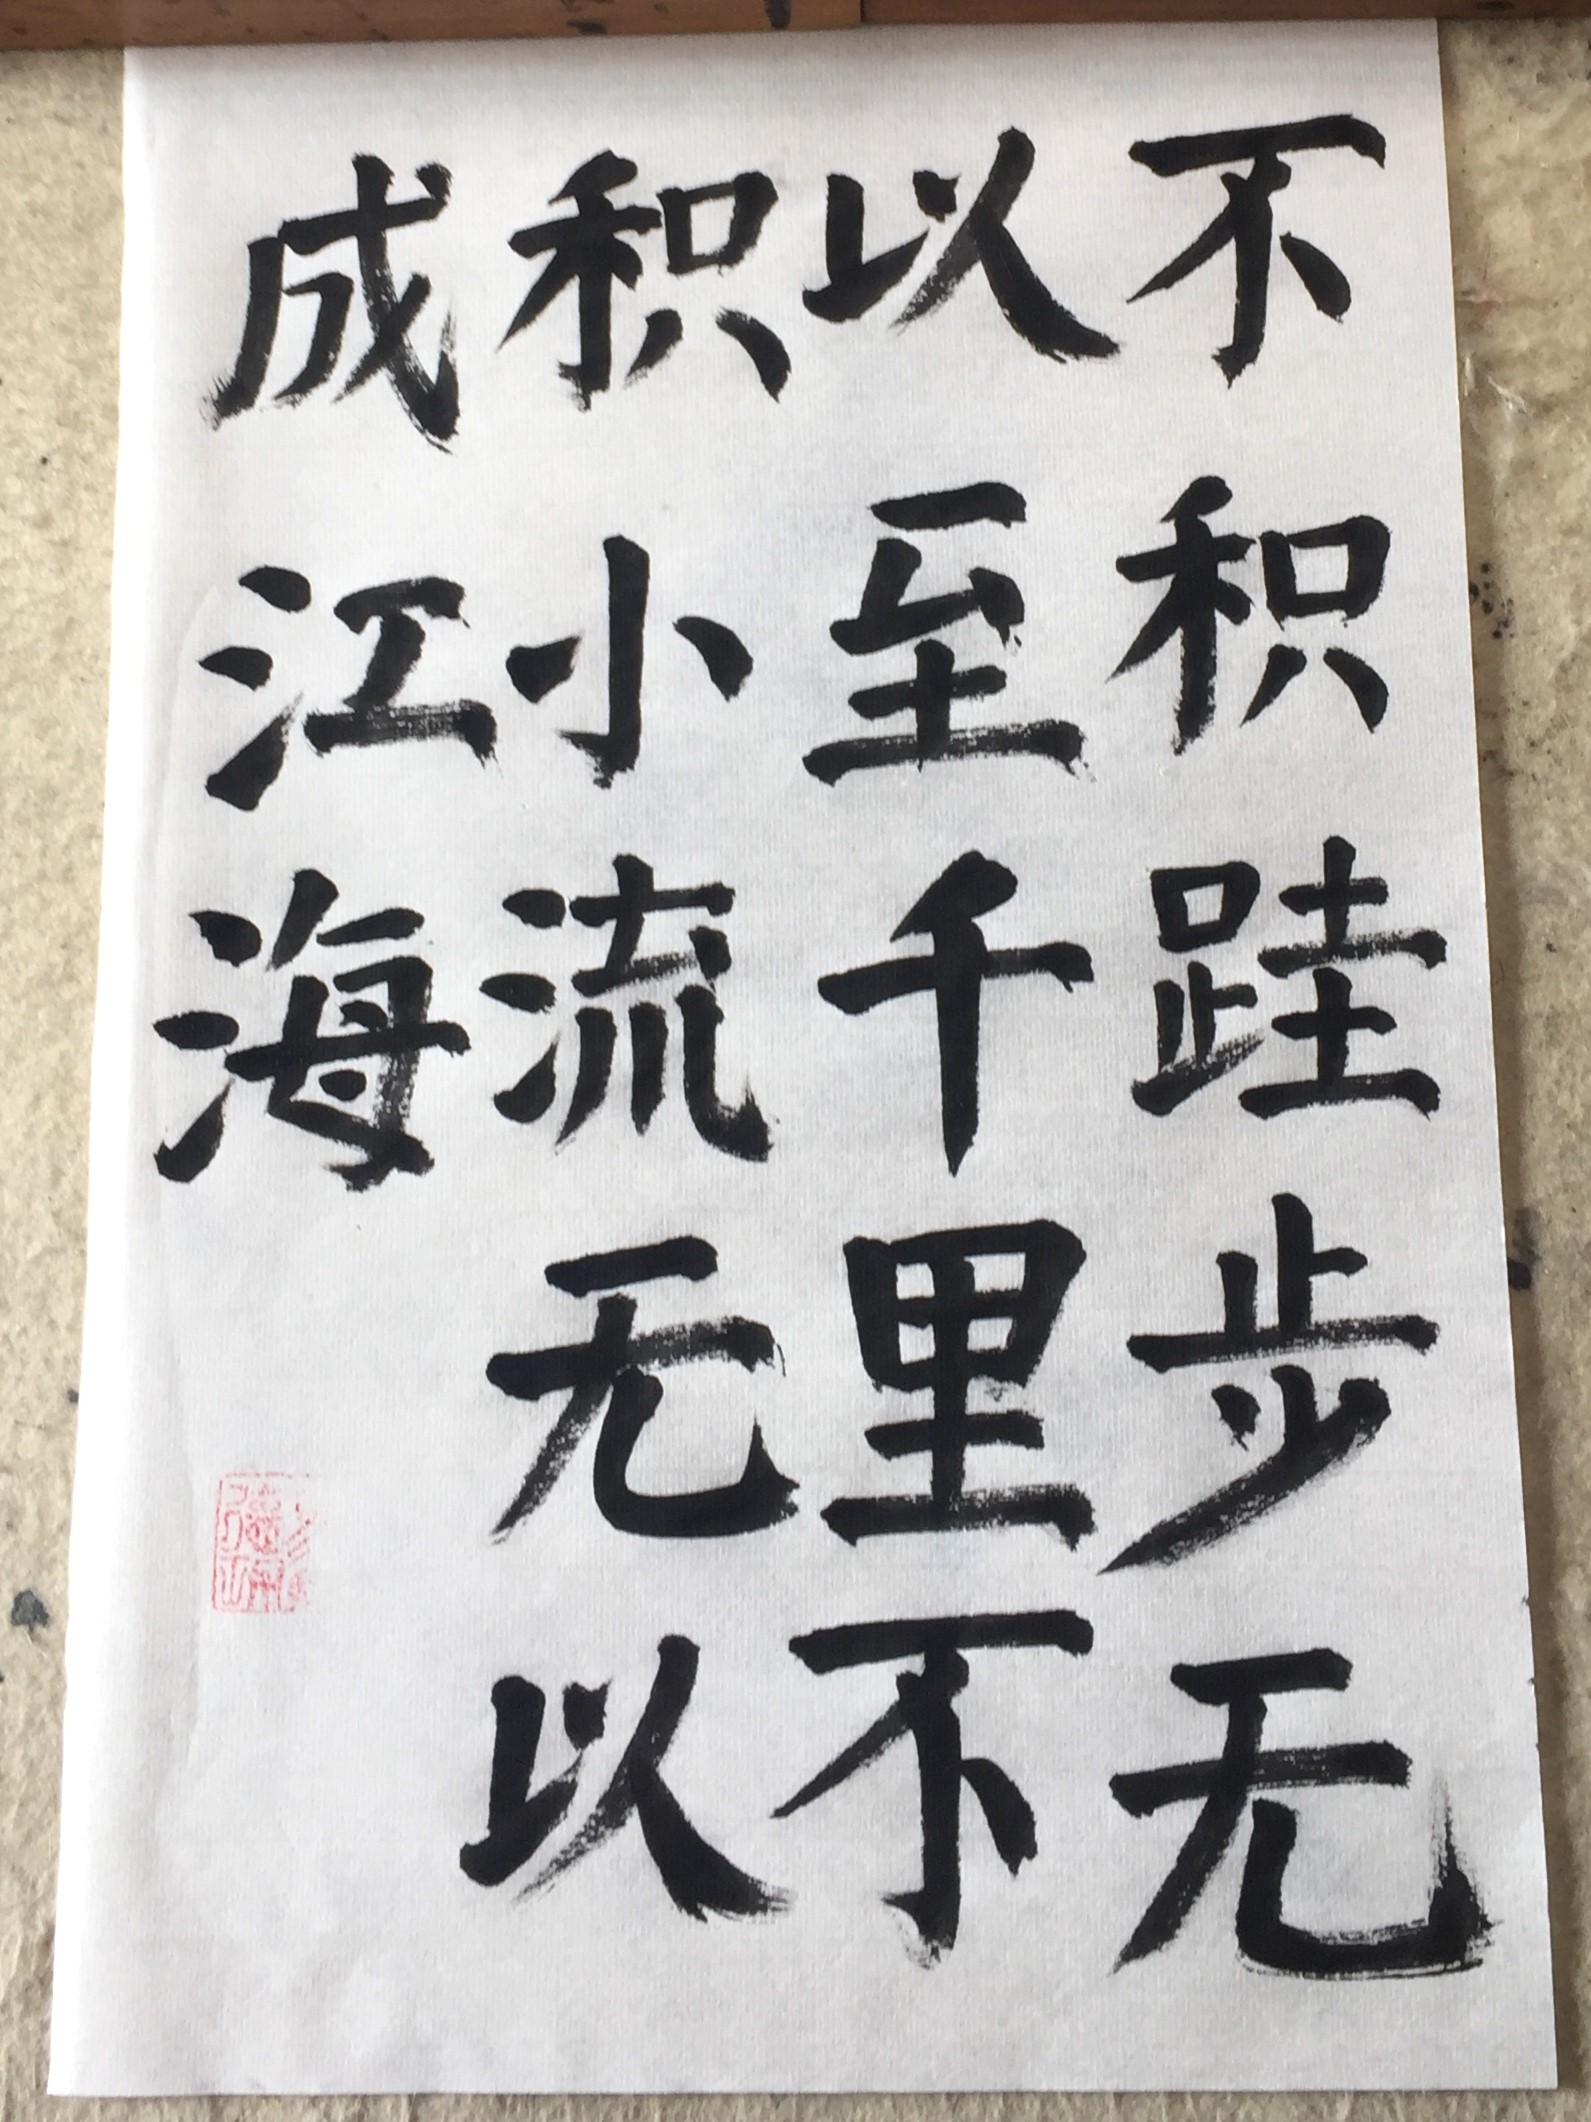 不积跬步无
以至千里不
积小流无以
成江海